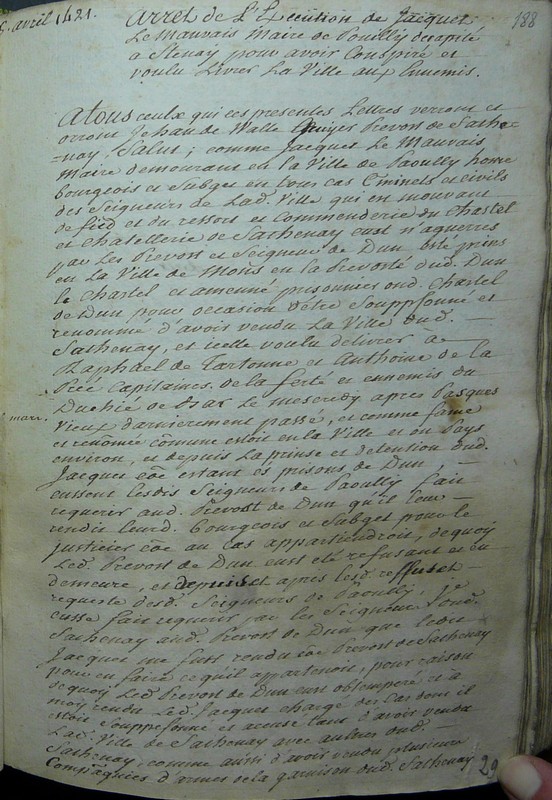 5. avril 1421.
188
Arret de L'Execution de Jacquet
Le Mauvais Maire de Pouilly decapité
a Stenay pour avoir Conspiré et
voulu Livrer La Ville aux Ennemis.
Atous ceulx qui ces presentes Lettres verront et
orront Jehan de Walle Prevost de Sathe=
=nay, Salut; comme Jacques Le Mauvais
Maire demourant en la Ville de Paoully home
bourgeois et Subget en tous cas Criminels et civils
des Seigneurs de Lad. Ville qui en mouvant
de fied et du ressort et Commenderie du Chastel
et Chastellerie de Sathenay eust n'agueres
par Les Prevost et Seigneur de Dun esté prins
en La Ville de Mons en la Prevosté dud. Dun
le Chastel et amenné prisonnier oud. Chastel
de Dun pour occasion d'etre Souppsonné et
renommé d'avoir vendu La Ville dud.
Sathenay, et icelle voulu delivrer à
Raphael de Tartonne et Anthoine de la
Capitaines, de la ferté et ennemis du
Duchié de Bar Le mescredy apres Pasques
mars.
vieux darnierement passé, et comme fame
et renomée comune estoit en la Ville et ou Pays
environ, et depuis La prinse et detention dud.
Jacques estant es prisons de Dun,
eussent Lesdis Seigneurs de Paoully fait
requerir aud. Prevost de Dun qu'il leur
rendit leurd. Bourgeois et Subget pour le
justicier au cas appartiendroit, dequoy
Led. Prevost de Dun eust été refusant et en
demeure, et depuis et apres lesd. reffus et
requeste desd. Seigneurs de Paoully, je
eusse fait requerir par les Seigneurs oud.
Sathenay aud. Prevost de Dun que ledit
Jacques me fust rendu Prevost de Sathenay
pour en faire ce qu'il appartenoit, pour raison
dequoy Led. Prevost de Dun eust obtemperé et a
moy rendu Led. Jacques chargé des Cas dont il
estoit Souppesonné et accusé tant d'avoir vendu
Lad. Ville de Sathenay avec aultres oud.
Sathenay, comme aussi d'avoir vendu plusieurs
Compagnies d'armes de la garnison dud. Sathenay
29